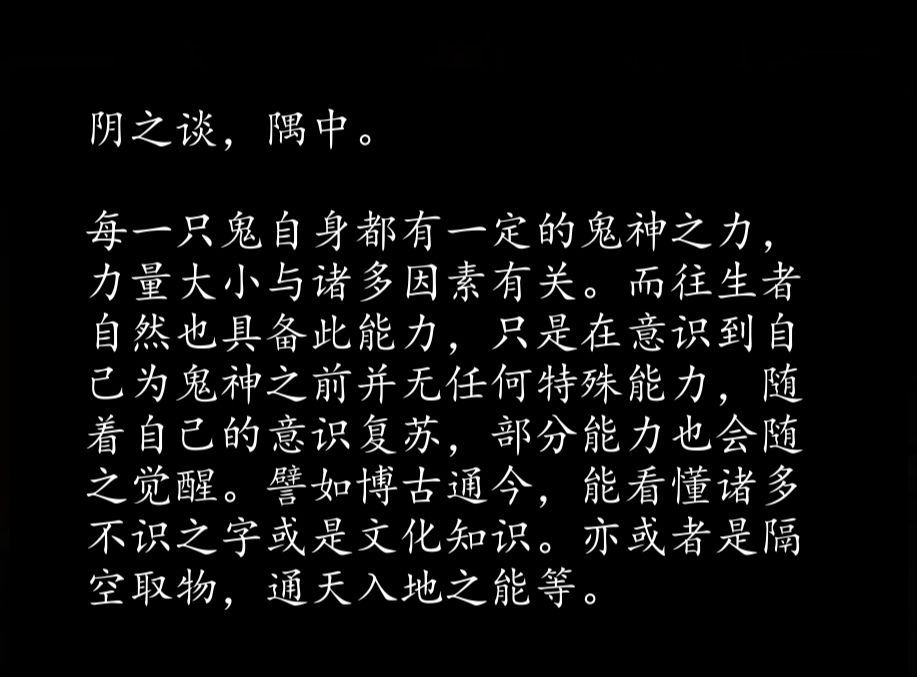 阴之谈，隅中。
每一只鬼自身都有一定的鬼神之力，
力量大小与诸多因素有关。而往生者
自然也具备此能力，只是在意识到自
己为鬼神之前并无任何特殊能力，随
着自己的意识复苏，部分能力也会随
之觉醒。譬如博古通今，能看懂诸多
不识之字或是文化知识。亦或者是隔
空取物，通天入地之能等。